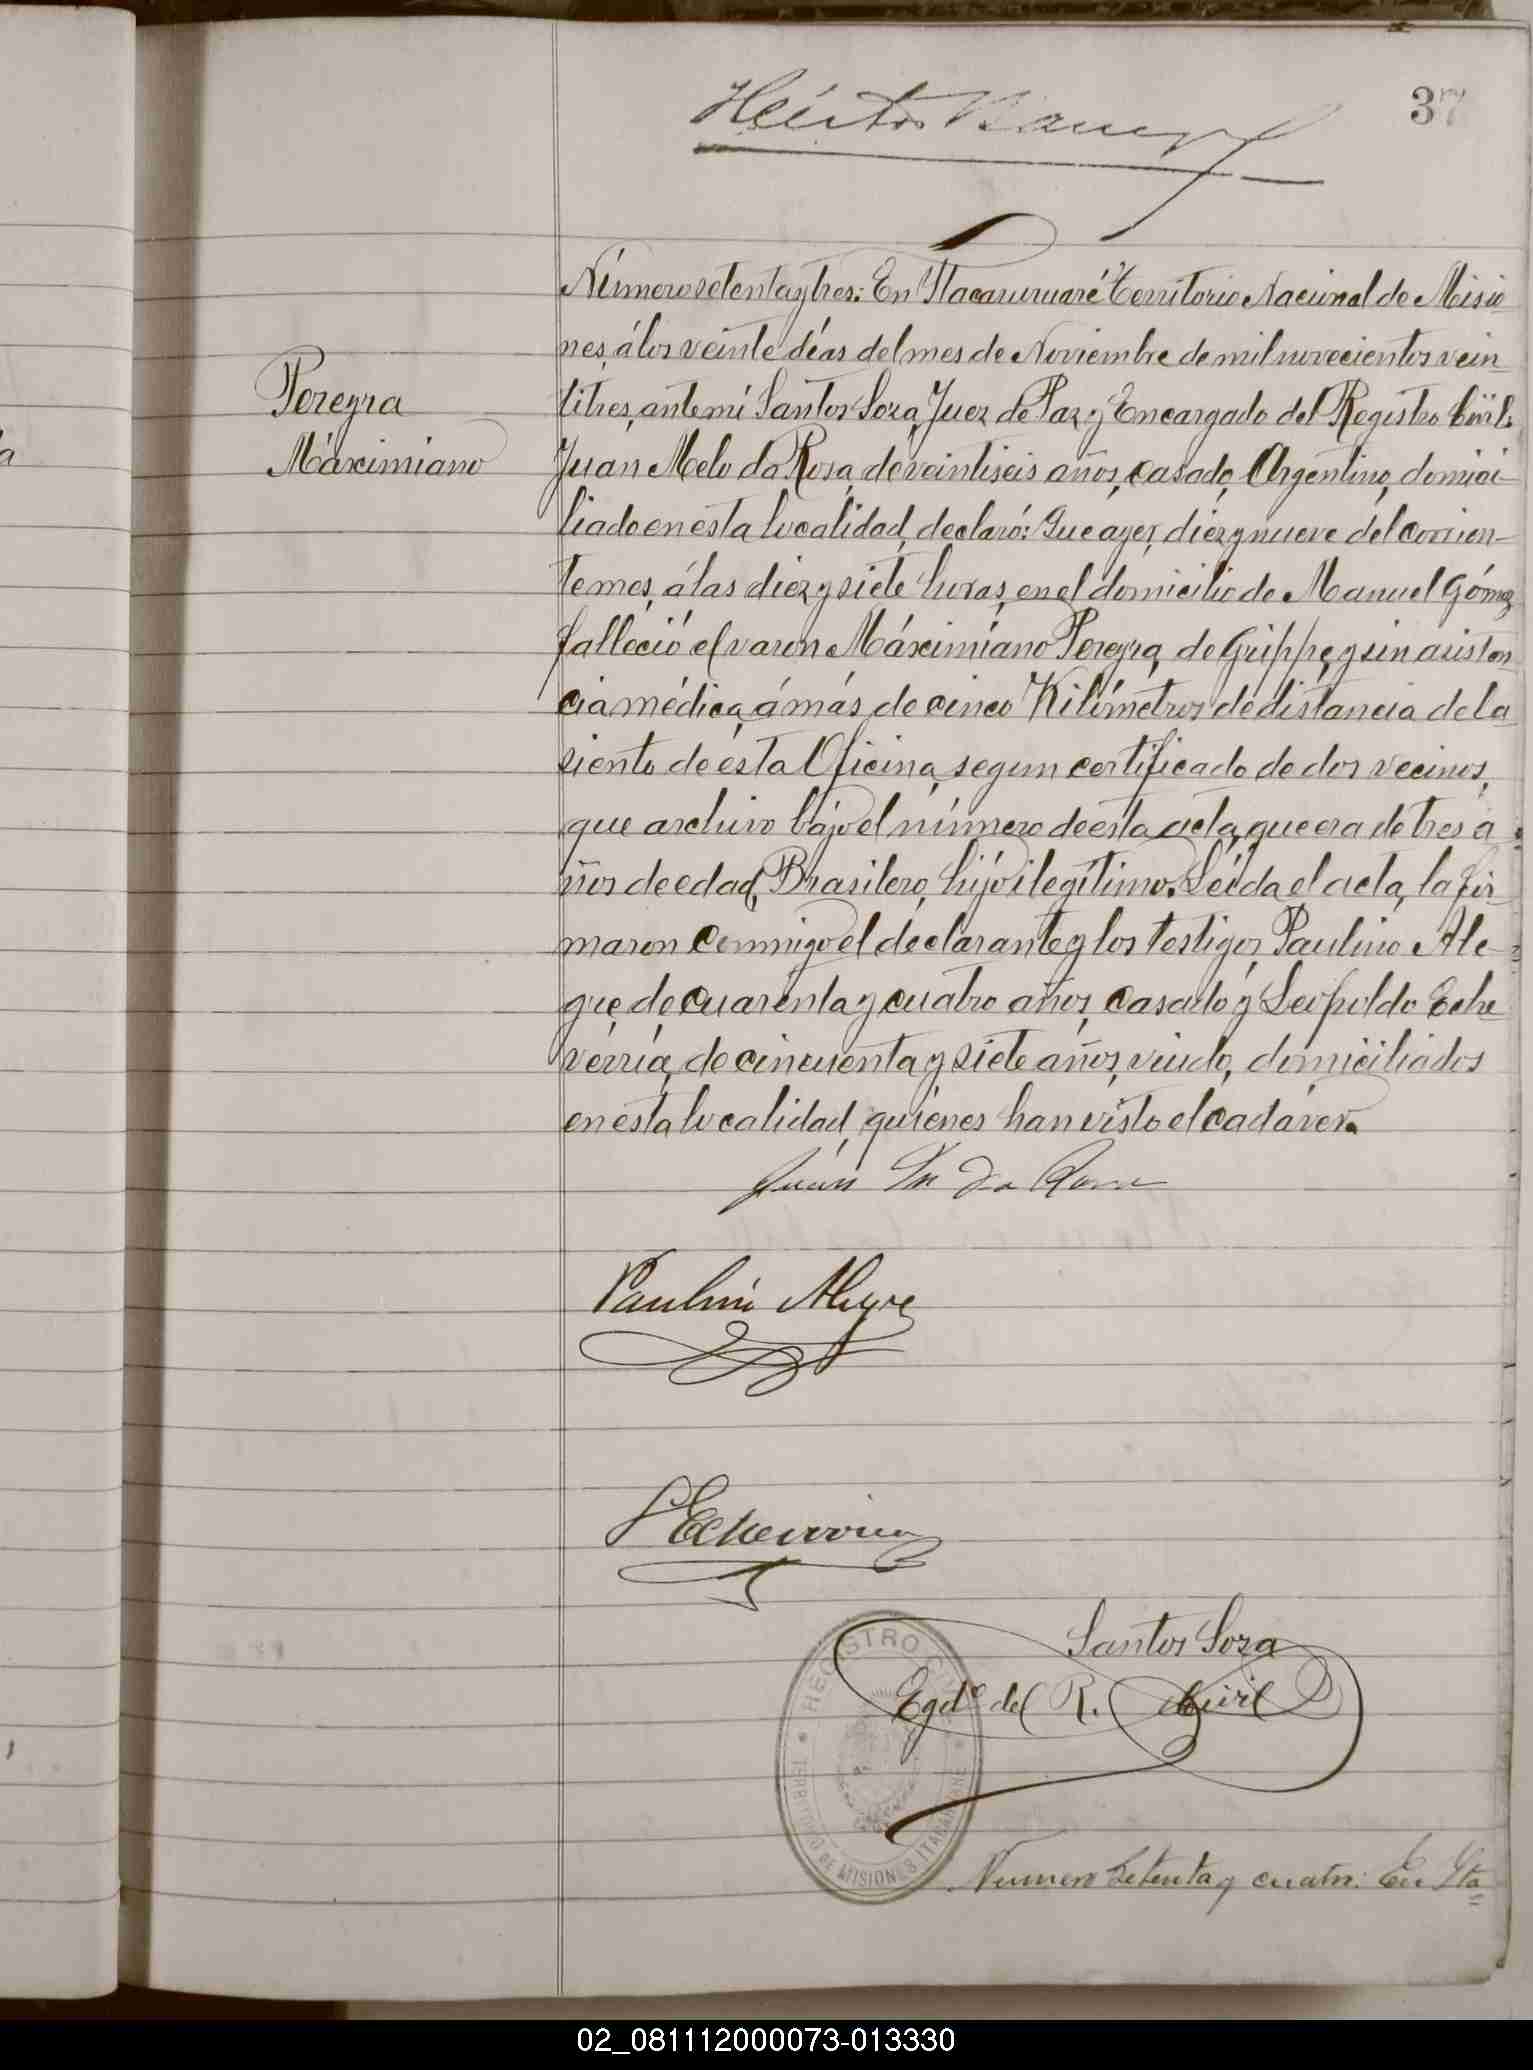 37
Héctor
Número setenta y tres: En Itacaruaré Territorio Nacional de Misio
nes, á los veinte días del mes de Noviembre de mil novecientos vein
titres, ante mí Santos Soza, Juez de Paz y Encargado del Registro Civil:
Pereyra
Máximiano
Juan Melo da Rosa, de veintiseis años, casado, Argentino, domici-
liado en esta localidad, declaró: Que ayer, diez y nueve del corrien-
te mes, á las diez y siete horas, en el domicilio de Manuel Gómez
falleció el varon Máximiano Pereyra, de Grippe, y sin asisten
cia médica, á más de cinco Kilómetros de distancia del a
siento de ésta Oficina, segun certificado de dos vecinos,
que archivo bájo el número de esta acta, que era de tres a
ños de edad, Brasilero, hijo ilegítimo. Leída el acta, la fir
maron conmigo el declarante y los testigos Paulino Ale
gre, de cuarenta y cuatro años, casado y Leopoldo Eche
verría, de cincuenta y siete años, viudo, domiciliados
en esta localidad, quienes han visto el cadáver.
Juan M da Rosa
Paulino Alegre
L Echeverria
Santos Soza
Egdo del R. Civil
REGISTRO CIVIL
TERRITORIO DE MISIONES
Numero Setenta y cuatro: En Ita
a
02_081112000073-013330